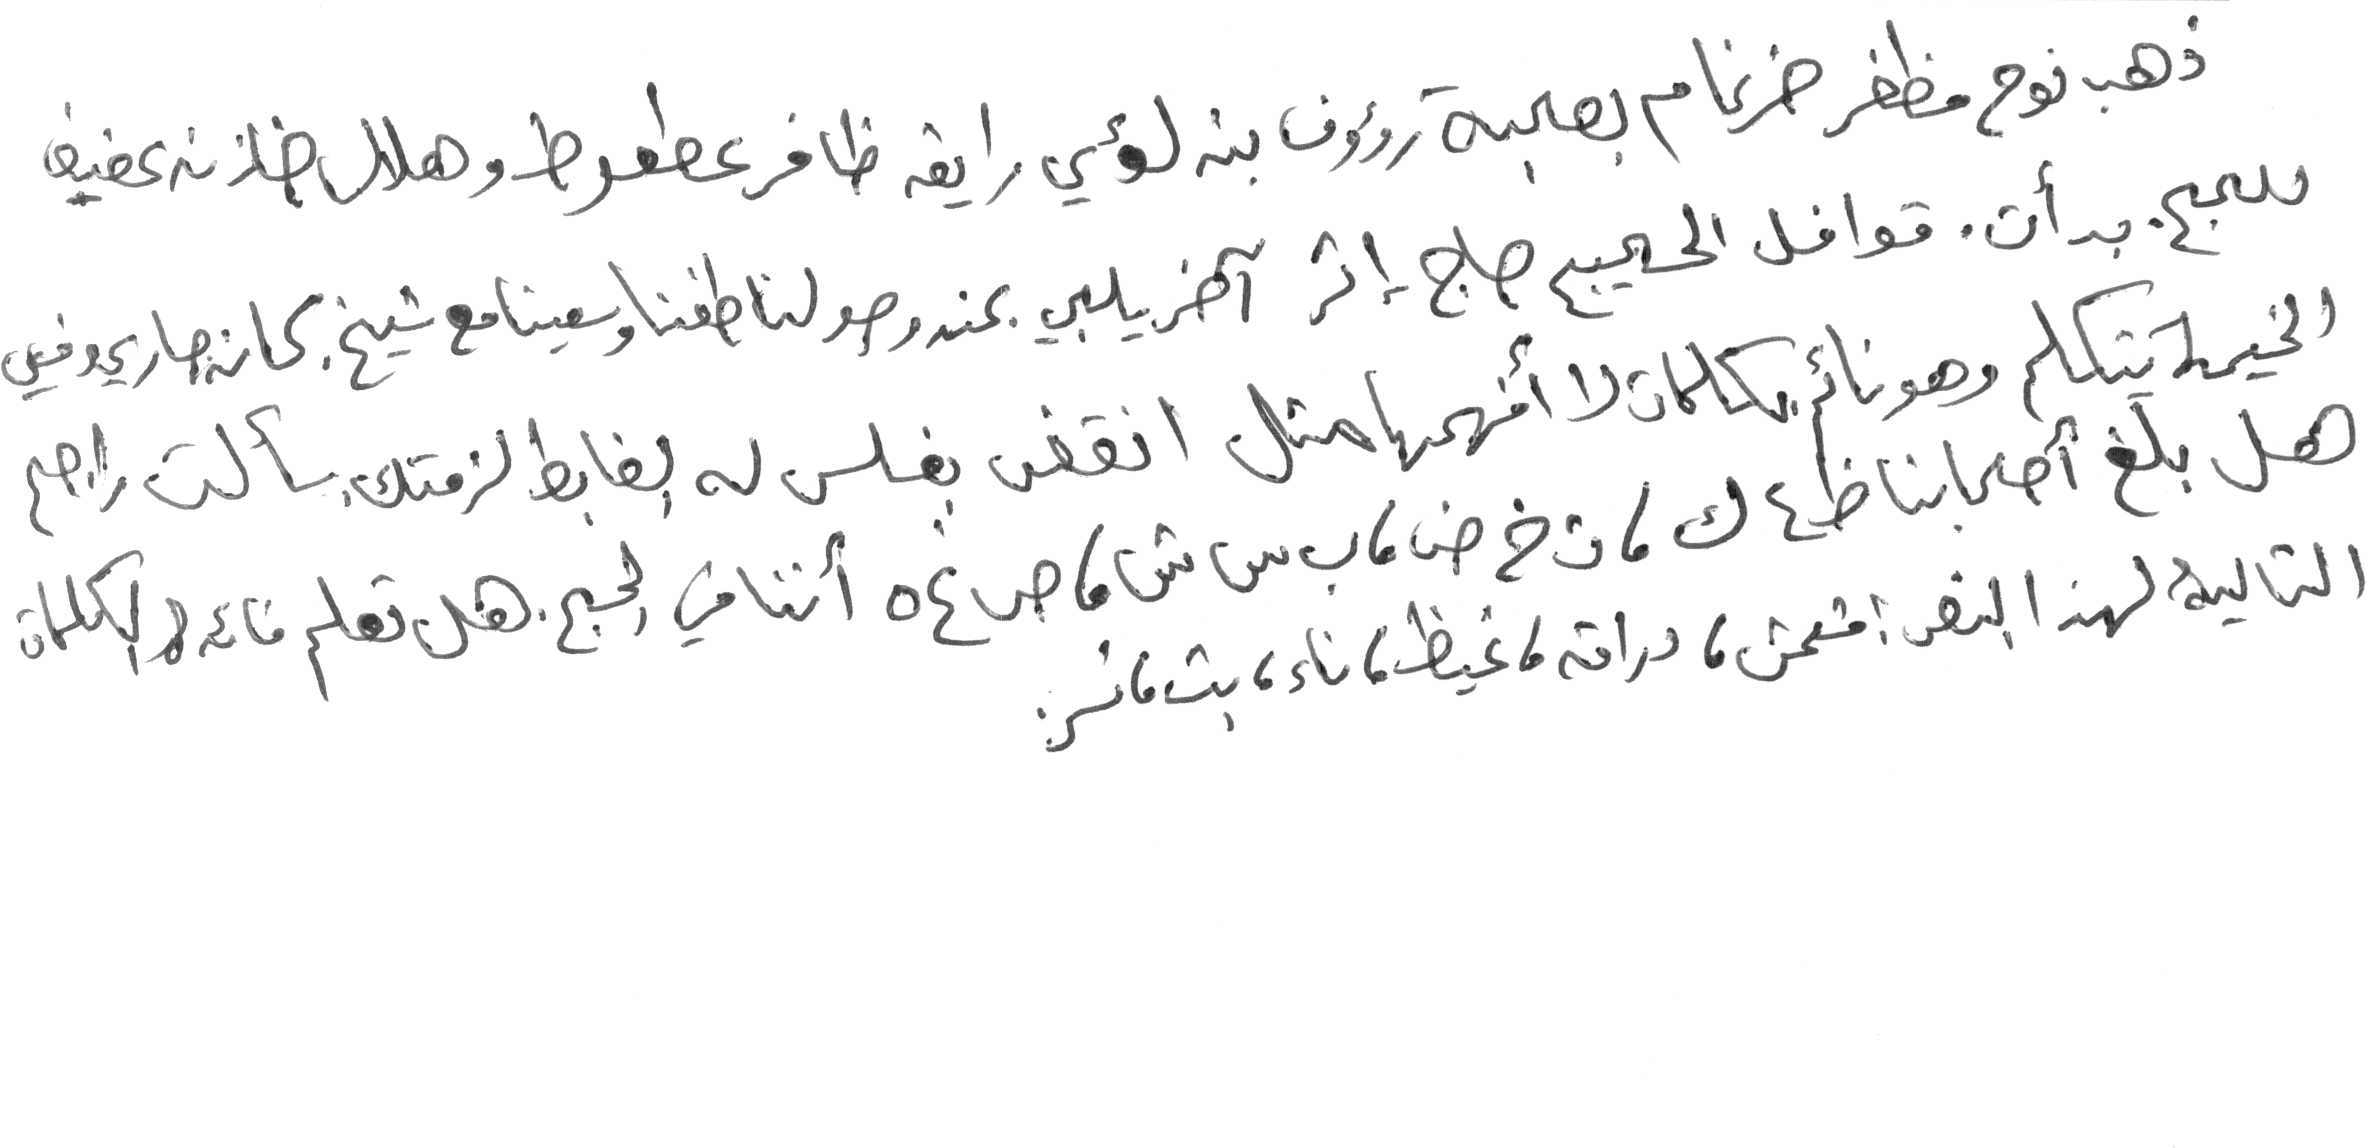 ذهب نوح مظفر ضرغام بصحبة رؤوف بن لؤي رايق ظافر عطعوط وهلال خازن عفيف
للحج. بدأت. قوافل الحجيج حاج إثر آخر يلبي. عند وصولنا طفنا وسعينا مع شيخ. كان جاري في
الخيمة يتكلم وهو نائم بكلمات لا أفهمها مثل انقض بغلس له بضابط لزمتك. سألت راجح
هل بلغ أصحابنا ظ ع ك ، ت خ ض ، ب س ش ، ص غ ه أثناء الحج. هل تعلم ما هي الكلمات
التالية لهذا النص: مشمش ، دراق ، غيظ ، ناء ، بث ، نز.